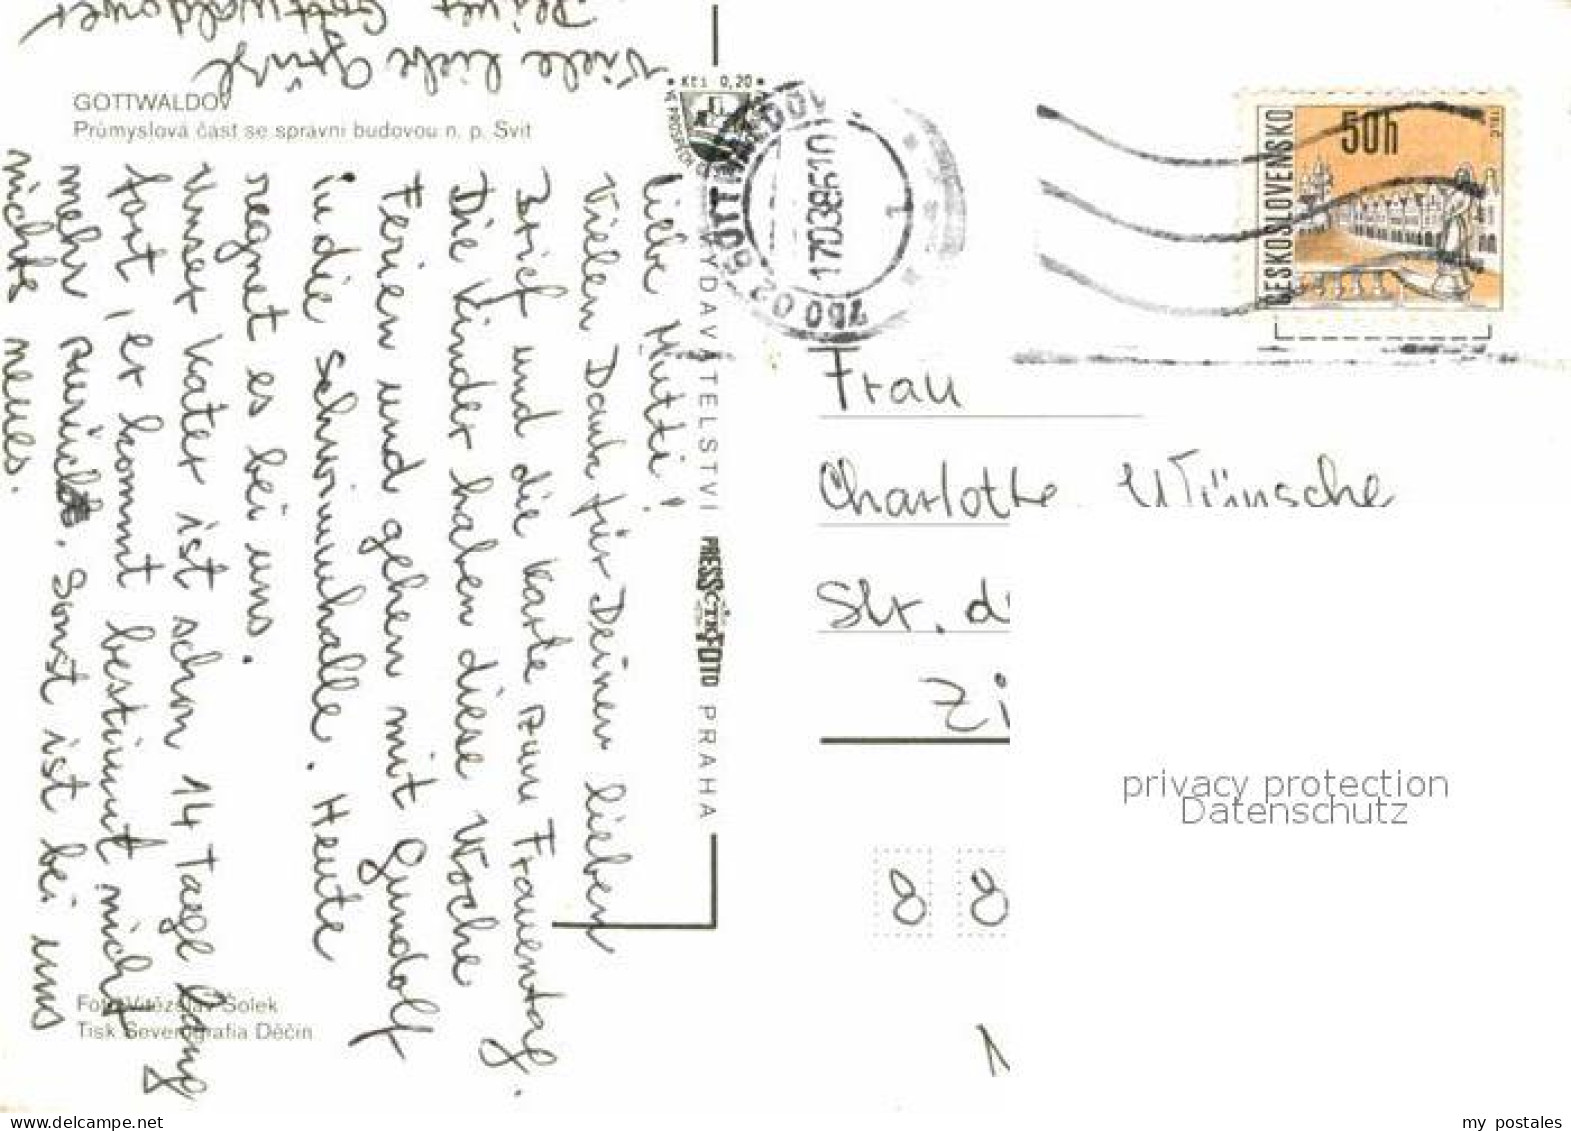 GOTTWALDOV
Průmyslová část se správní budovou n. p. Svit
Liebe Mutti!
Vielen Dank für Deinen lieben
Brief und die Karte zum Frauentag.
Die Kinder haben diese Woche
Ferien und gehen mit Gundolf
in die Schwimmhalle. Heute
regnet es bei uns.
Unser Kater ist schon 14 Tage lang
fort, er kommt bestimmt nicht
mehr zurück. Sonst ist bei uns
nichts neues.
Viele liebe Grüße
Gottwaldower
Foto Vítězslav Šolek
Tisk Severografia Děčín
VYDAVATELSTVÍ PRESSFOTO PRAHA
ČTK
Kčs 0,20
GOTTWALDOV 1
760 02
17.03.86 10
1
ČESKOSLOVENSKO
50h
TELČ
Frau
Charlotte Wünsche
Str. d
Zi
privacy protection
Datenschutz
8 8
delcampe.net
my_postales